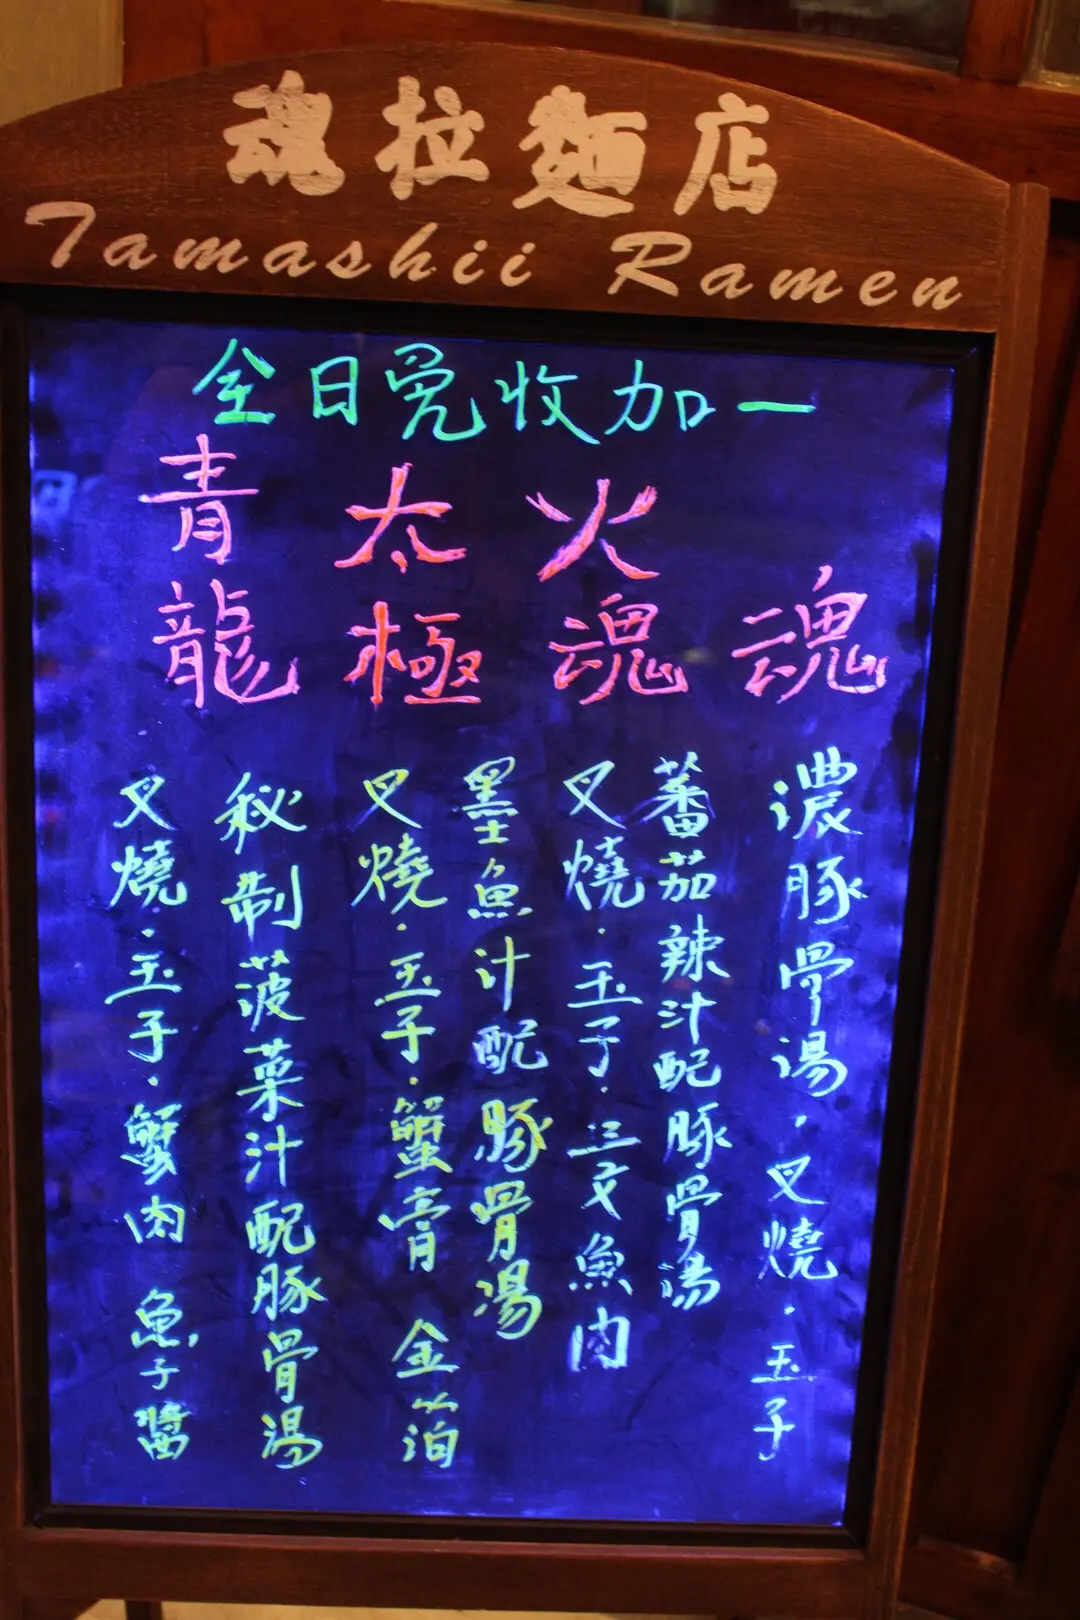 魂拉麵店
Tamashii Ramen
全日免收加一
魂
濃豚骨湯．叉燒．玉子
火魂
蕃茄辣汁配豚骨湯
叉燒．玉子．三文魚肉
太極
墨魚汁配豚骨湯
叉燒．玉子．蟹膏 金箔
青龍
秘制菠菜汁配豚骨湯
叉燒．玉子．蟹肉 魚子醬